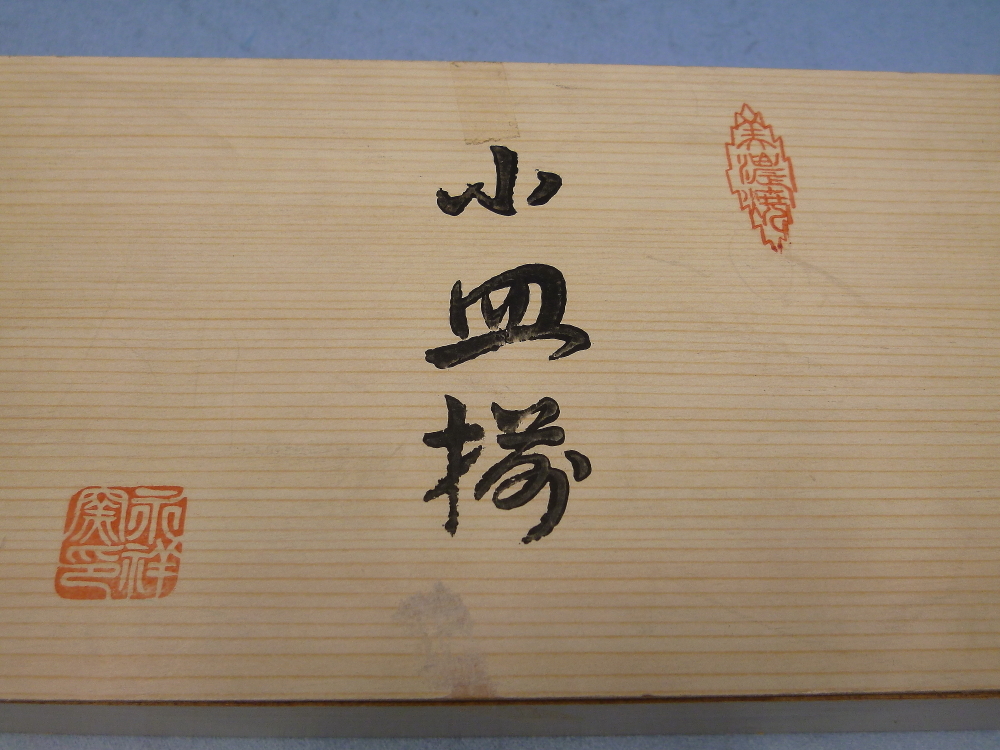 美濃焼
小皿揃
永祥窯印